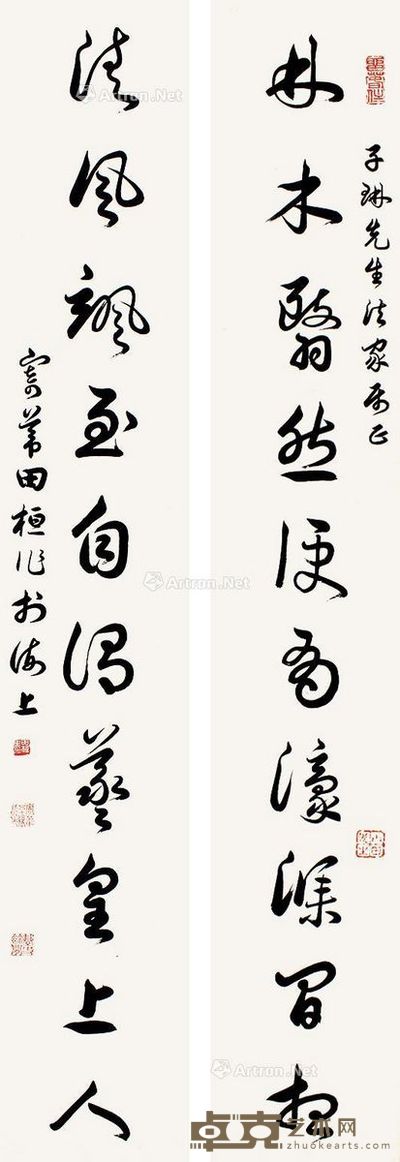 子琳先生法家屬正
林木翳然便有濠濮間想
清風颯至自謂羲皇上人
寄葦田桓作於海上
Artron.Net
Artron.Net
Artron.Net
Artron.Net
卓克艺术网
www.zhuokearts.com